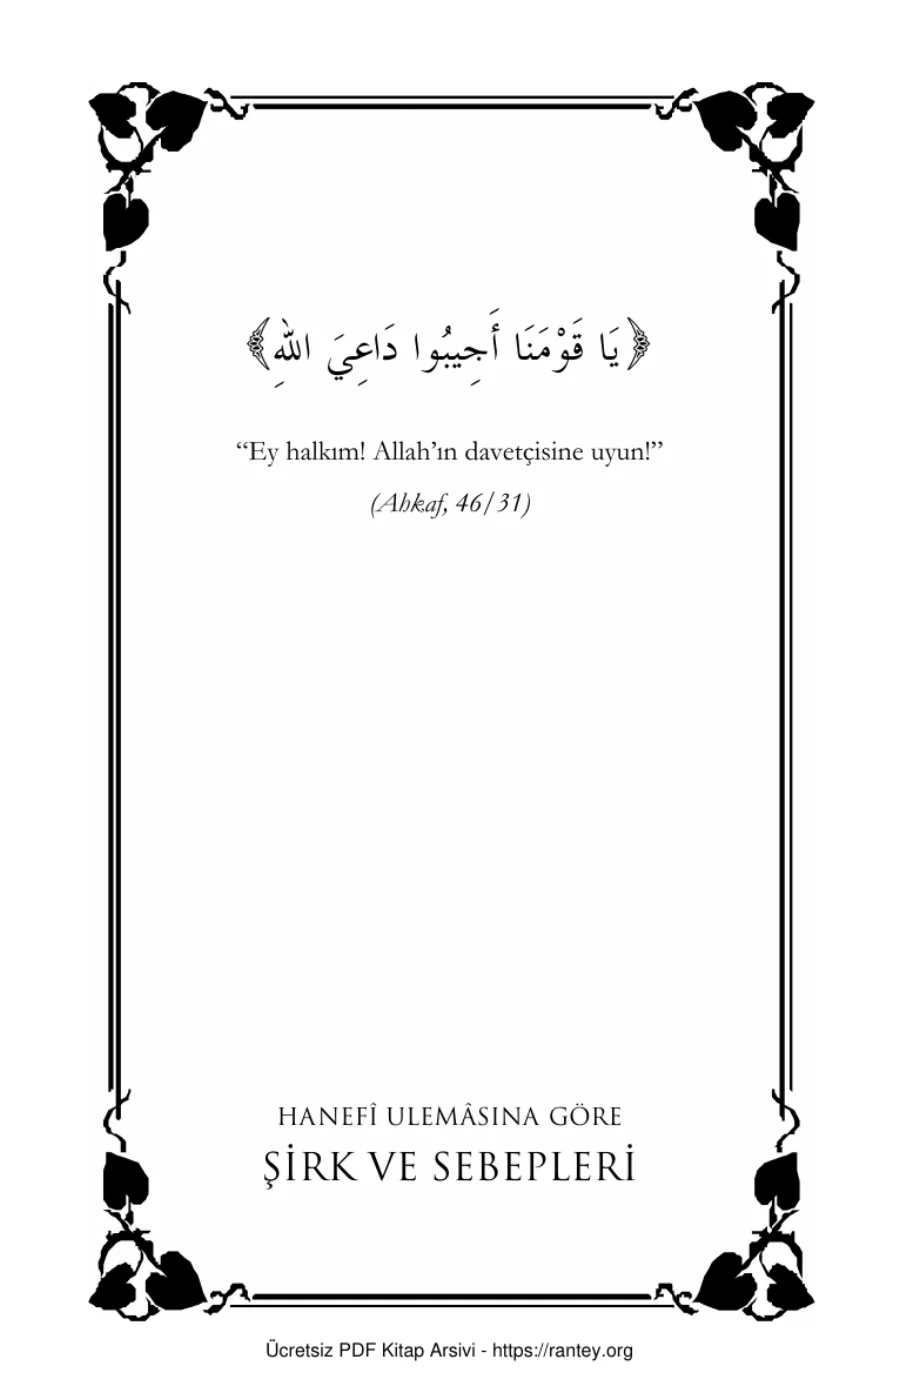 ﴿يَا قَوْمَنَا أَجِيبُوا دَاعِيَ اللّٰهِ﴾
“Ey halkım! Allah’ın davetçisine uyun!”
(Ahkaf, 46/31)
HANEFÎ ULEMÂSINA GÖRE
ŞİRK VE SEBEPLERİ
Ücretsiz PDF Kitap Arsivi - https://rantey.org